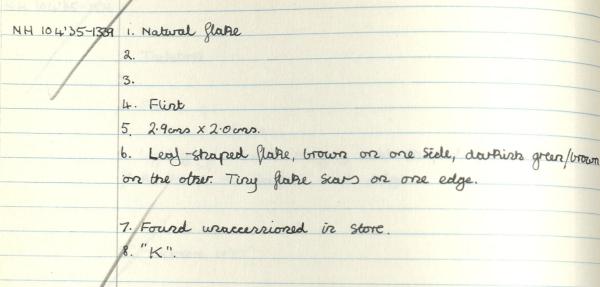 NH 104'35-1339 1. Natural flake
2.
3.
4. Flint
5. 2.9cms x 2.0cms.
6. Leaf-shaped flake, brown on one side, darkish green/brown
on the other. Tiny flake scars on one edge.
7. Found unaccessioned in store.
8. "K".